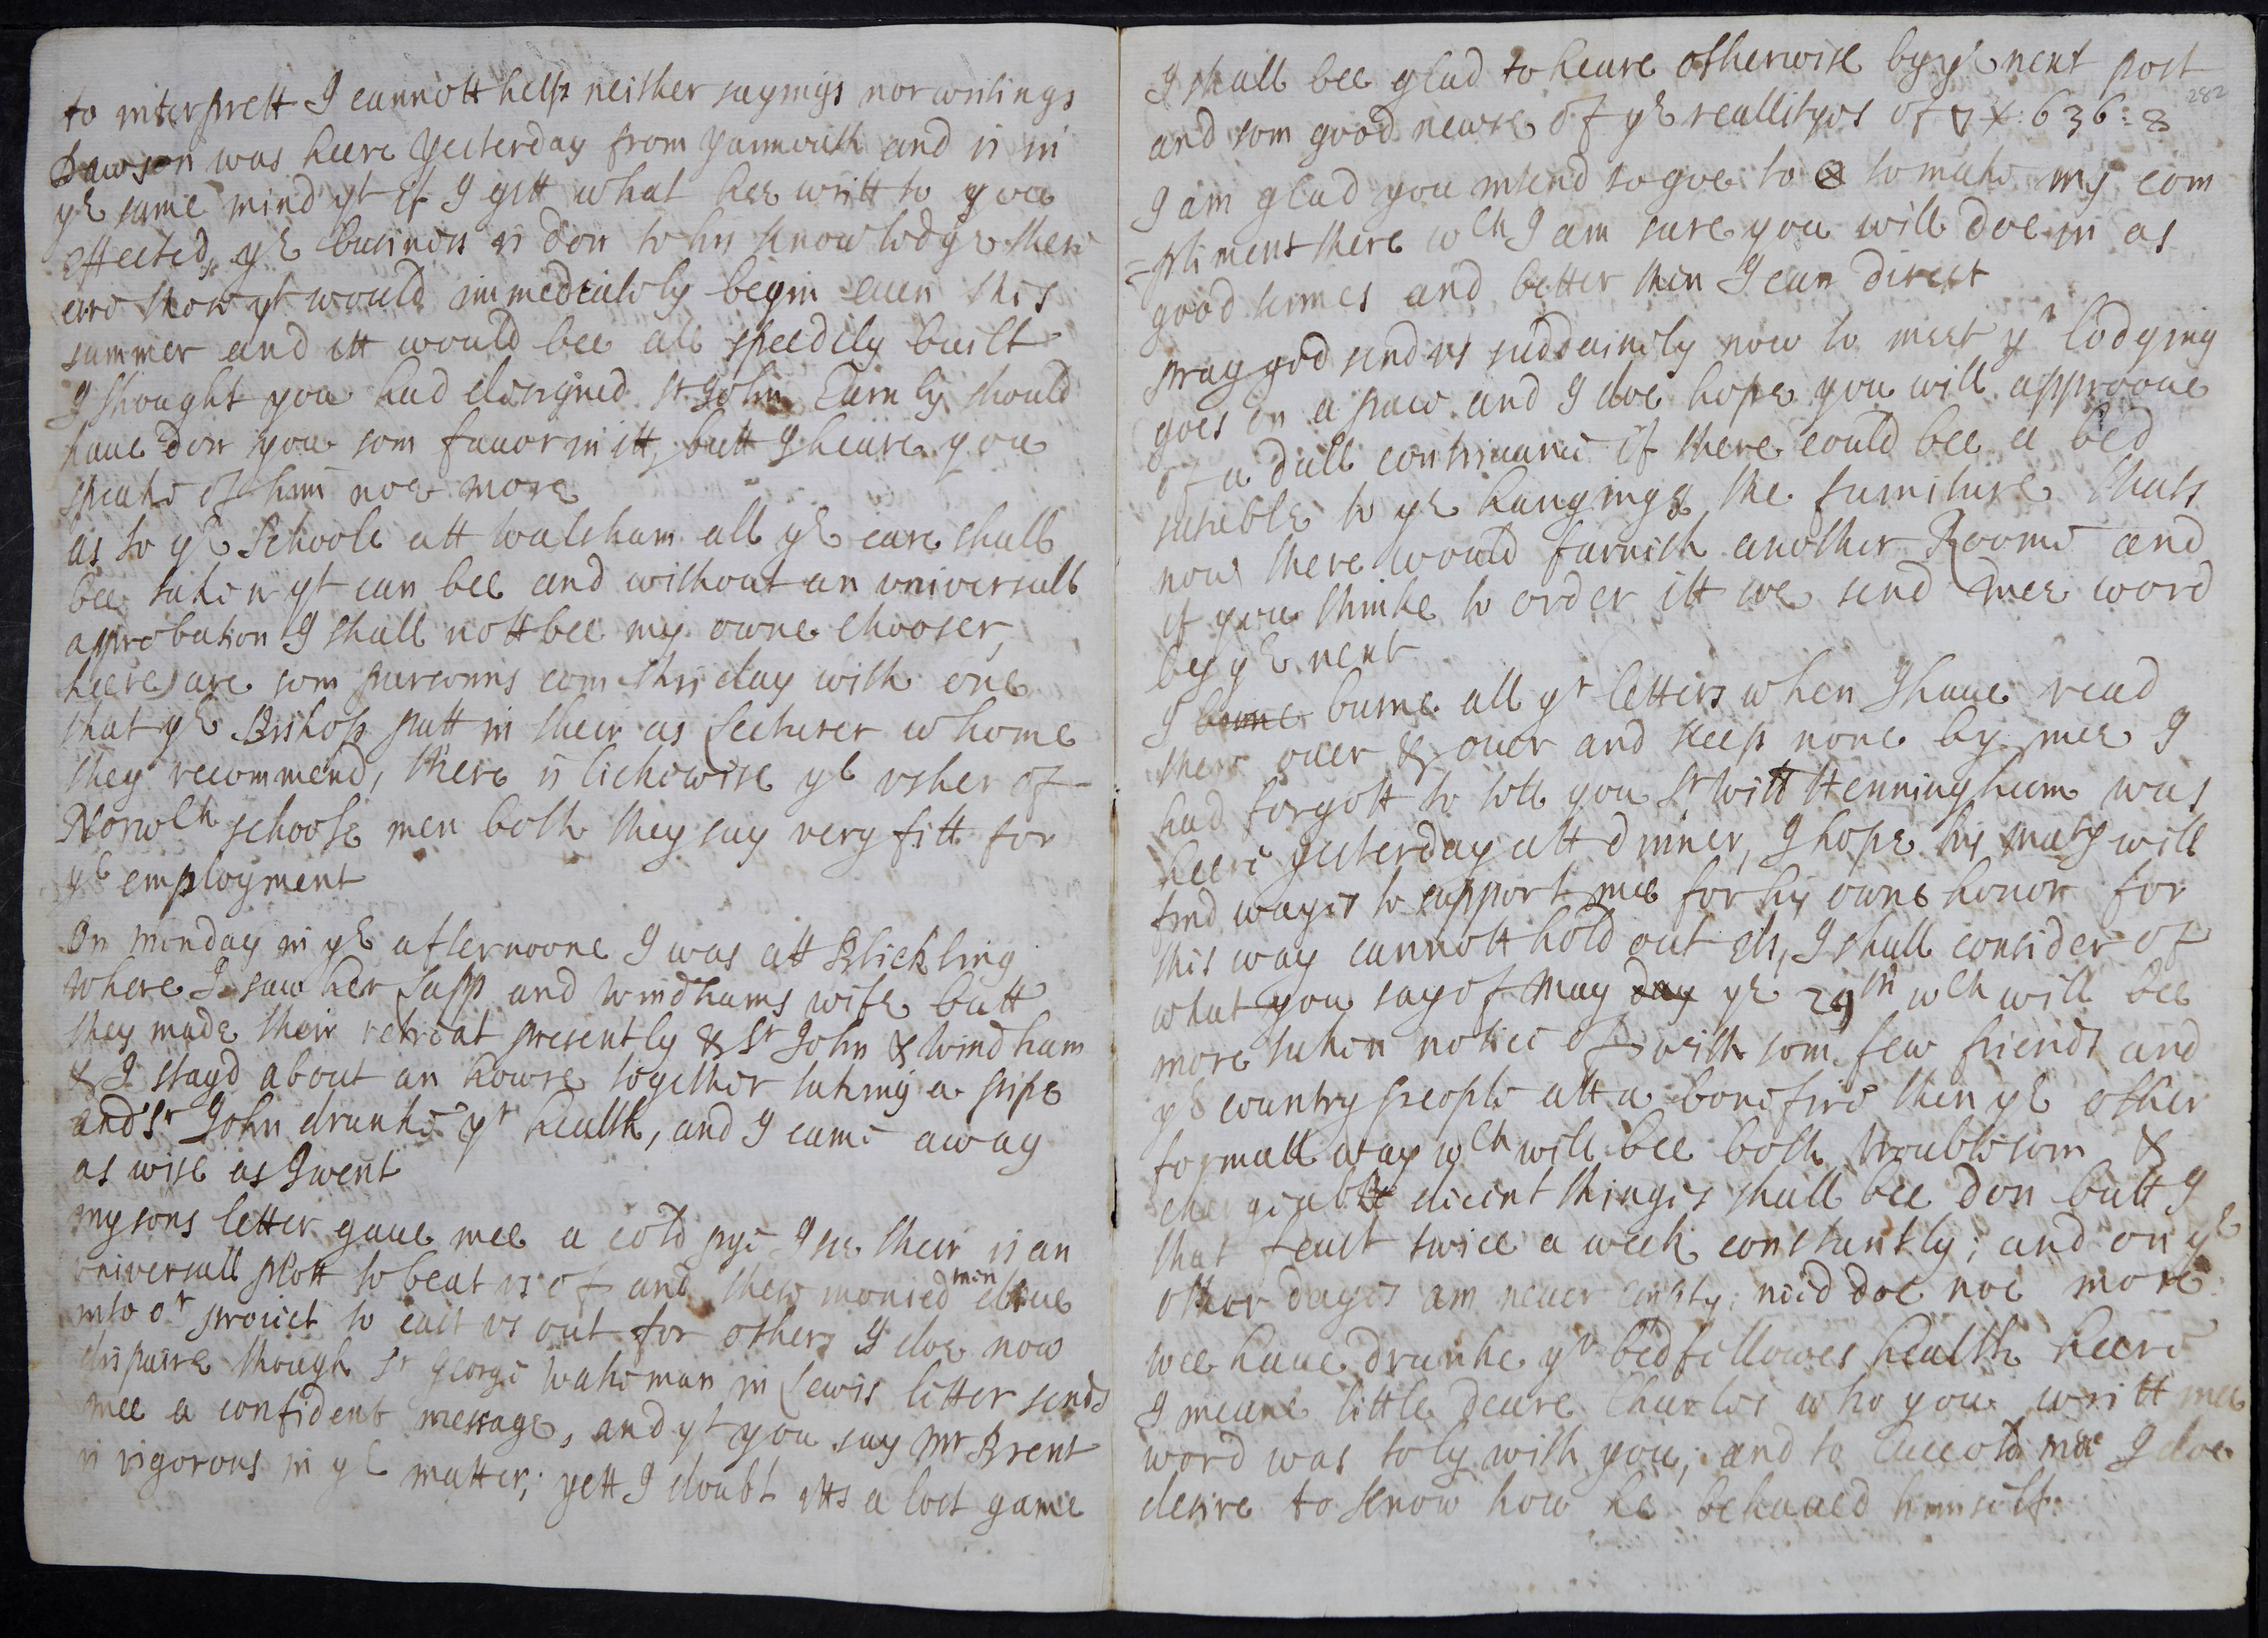 to interprett I cannott help neither sayings nor writings
Dawson was heere yesterday from yarmouth and is in
ye same mind yt if I gett what hee writt to you
effected, ye business is don to his knowlodge there
are thow yt would immediatoly begin euen this
summer and itt would bee all speedily built
I thought you had designed Sr John Earnly should
haue don you som fauor in itt, butt I heare you
speake of him noe more
as to ye Schoole att walsham all ye care shall
bee taken yt can bee and without an vniversall
approbation I shall nott bee my owne chooser,
heere are som parsonns com this day with one
that ye Bishop putt in their as Lecturer whome
they recommend, there is lickewise ye vsher of
Norwch schoole men both they say very fitt for
ye employment
On monday in ye afternoone I was att Blickling
where I saw her Lapp and windhams wife butt
they made their retreat presently & Sr John & windham
& I stayd about an howre together taking a pipe
and Sr John dranke yr health, and I came away
as wise as I went
my sons letter gaue mee a cold pye I see their is an
vniversall plott to beat vs of and thes monied men
into or proiect to cast vs out for others I doe now
dispaire though Sr George wakeman in Lewis letter sends
mee a confident message, and yt you say Mr Brent
is vigorous in ye matter; yett I doubt itts a lost game
282
I shall bee glad to heare otherwise by ye next post
and som good newse of ye reallityes of 636: 8
I am glad you intend to goe to to make my com
=pliment there wch I am sure you will doe in as
good termes and better then I can direct
pray god send vs suddainely now to meet yr lodging
goes on a pace and I doe hope you will approoue
of a dull continuance if there could bee a bed
sutable to ye hangings, the furniture thats
now there would furnish another Roome and
if you thinke to order itt soe send mee word
by ye next
I burne all yr letters when I haue read
them ouer & ouer and keep none by mee I
had forgott to tell you Sr Will Henningham was
heere yesterday att dinner, I hope his maty will
find wayes to support mee for his owne honor for
this way cannott hold out els, I shall consider of
what you say of May day ye 29th wch will bee
more taken notice of with som few friends and
ye country people att a bonefire then ye other
formall way wch will bee both troublesom &
chargeable decent things shall bee don butt I
that feast twice a week constantly; and on ye
other dayes am neuer empty; need doe noe more
wee haue drunke yr bedfellowes health heere
I meane little deare Charles who you writt mee
word was to ly with you; and to mee I doe
desire to know how he behaued himself.